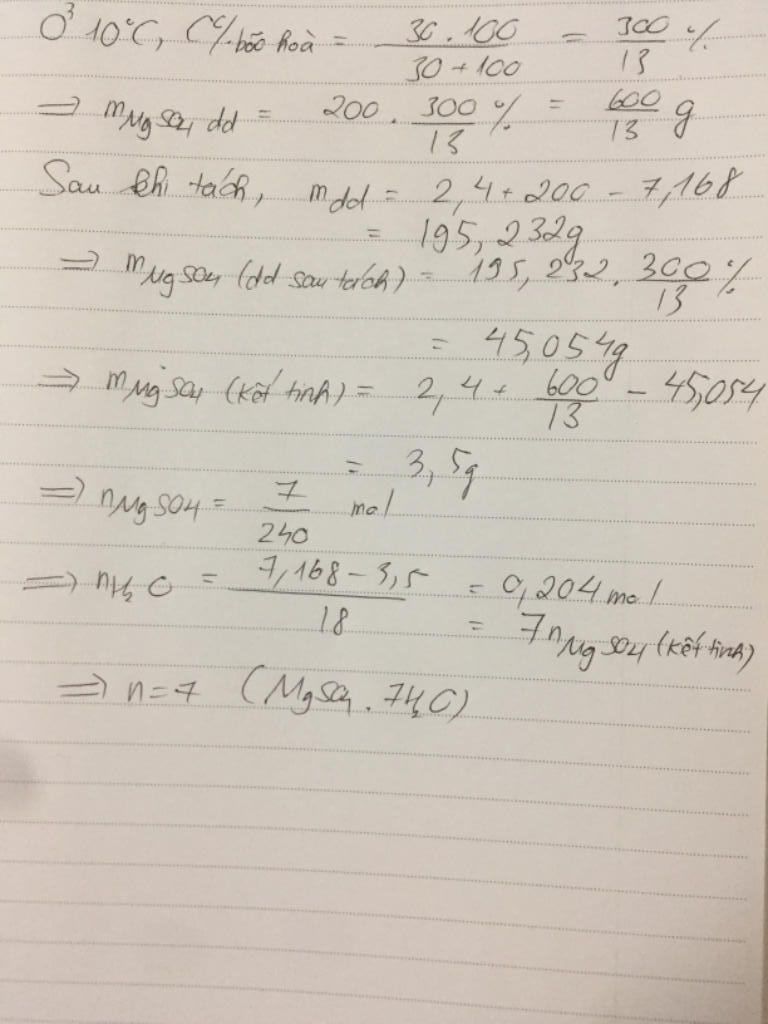 Ở 10°C, C% bão hoà = 30 . 100 / 30 + 100 = 300 / 13 %
⇒ mMgSO4 dd = 200 . 300 / 13 % = 600 / 13 g
Sau khi tách, mdd = 2,4 + 200 - 7,168
= 195,232g
⇒ mMgSO4 (dd sau tách) = 195,232 . 300 / 13 %
= 45,054g
⇒ mMgSO4 (kết tinh) = 2,4 + 600 / 13 - 45,054
= 3,5g
⇒ nMgSO4 = 7 / 240 mol
⇒ nH2O = 7,168 - 3,5 / 18 = 0,204 mol
= 7nMgSO4 (kết tinh)
⇒ n = 7 (MgSO4 . 7H2O)